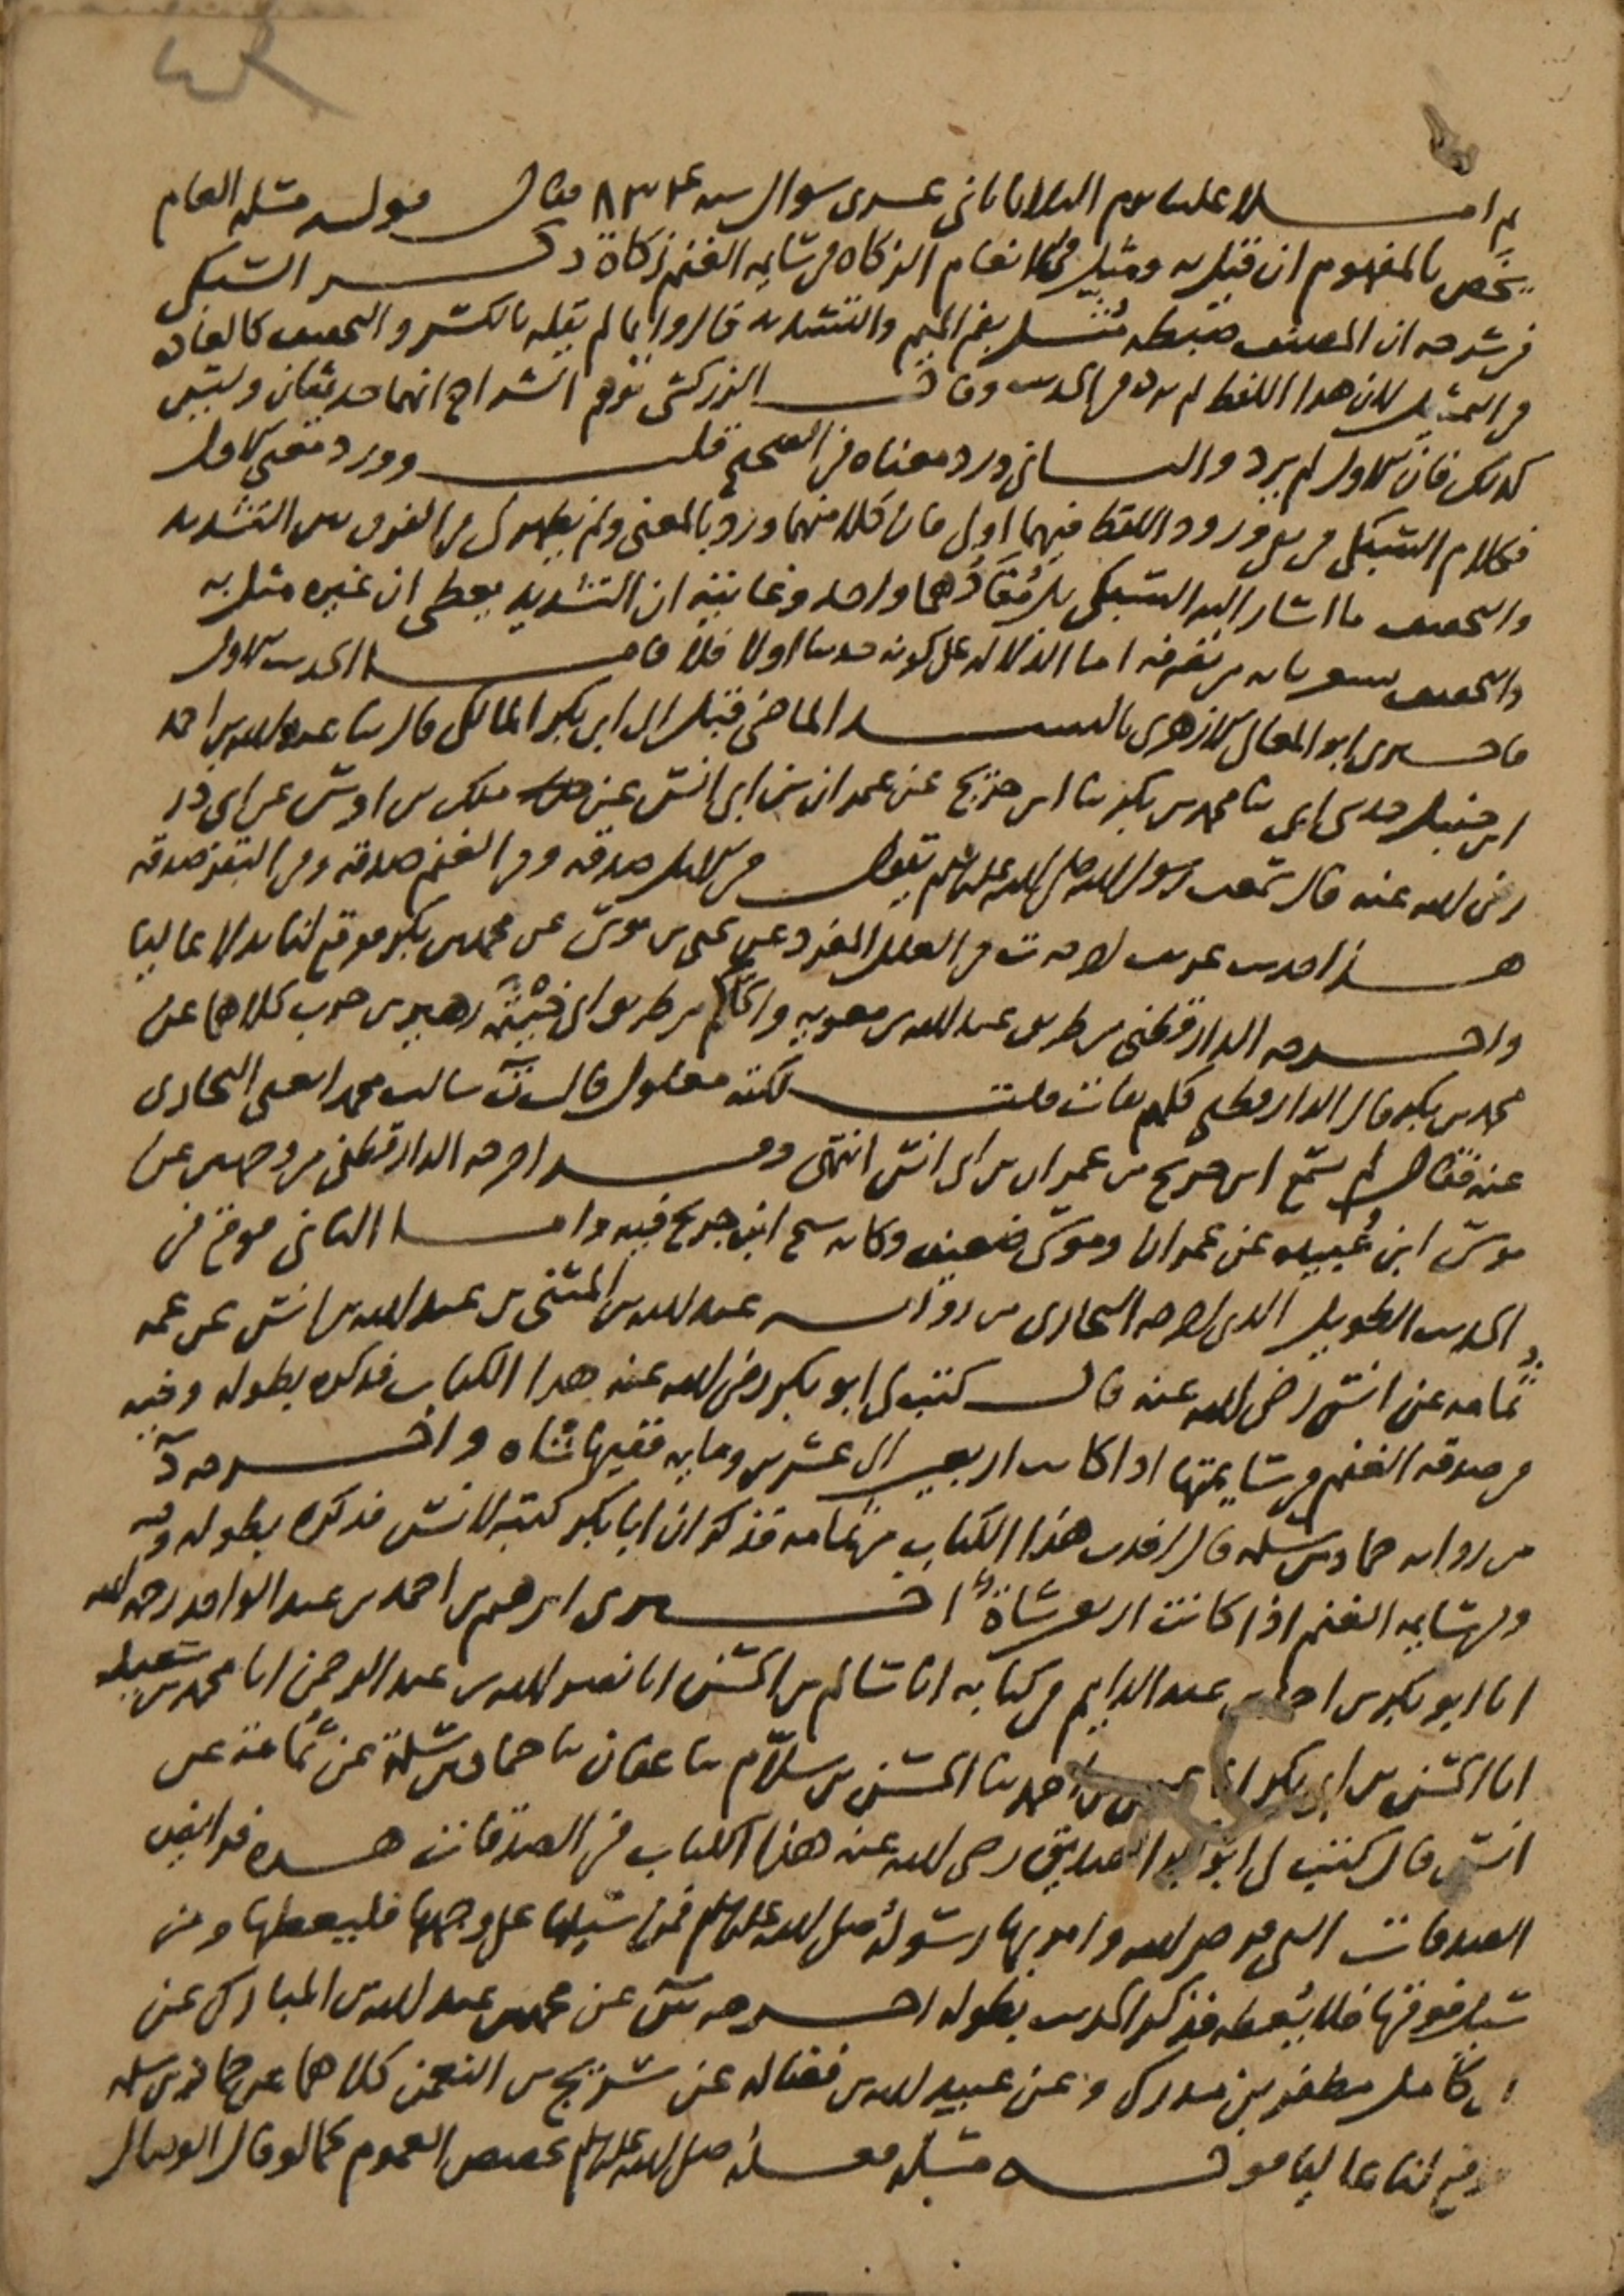 ثم املا علينا يوم الثلاثا ثاني عشري شوال سنة ٨٣٤ فقال قوله مسئلة العام
يخص بالمفهوم ان قيل به ومثل في الانعام الزكاة في سايمة الغنم زكاة ذكر السبكي
في شرحه ان المصنف ضبطه مُثّل بضم الميم والتشديد قالوا وانما لم يقله بالكسر والتخفيف كالعادة
في التمثيل لان هذا اللفظ لم يرد في الحديث وقال الزركشي توهم الشراح انهما حديثان وليس
كذلك فان الاول لم يرد والثاني ورد معناه في الصحيح قلت وورد معنى الاول
فكلام السبكي في نفي ورود اللفظ فيهما اولى فان كلا منهما ورد بالمعنى ولم يظهر لي في الفرق بين التشديد
والتخفيف ما اشار اليه السبكي بل مُفَادُهما واحد وغايته ان التشديد يعطي ان غيره مثل به
والتخفيف يشعر بانه من تصرفه اما الدلالة على كونه حديثا اولا فلا فاما الحديث الاول
فاخبرني ابو المعالي الازهري بالسند الماضي قبل الى ابي بكر المالكي قال ثنا عبد الله بن احمد
ابن حنبل حدثني ابي ثنا محمد بن بكر ثنا ابن جريج عن عمران بن ابي انس عن ملك بن اوس عن ابي ذر
رضي الله عنه قال سمعت رسول الله صلى الله عليه وسلم يقول في الابل صدقة وفي الغنم صدقة وفي البقر صدقة
هذا حديث غريب اخرجه ت في العلل المفرد عن يحيى بن موسى عن محمد بن بكر فوقع لنا بدلا عاليا
واخرجه الدارقطني من طريق عبد الله بن معوية والحاكم من طريق ابي خيثمة زهير بن حرب كلاهما عن
محمد بن بكر قال الدارقطني كلهم ثقات قلت لكنه معلول قال ت سالت محمدا يعني البخاري
عنه فقال لم يسمع ابن جريج من عمران بن ابي انس انتهى وقد اخرجه الدارقطني من وجهين عن
موسى ابن عُبيدة عن عمران وموسى ضعيف وكانه شيخ ابن جريج فيه واما الثاني فوقع في
الحديث الطويل الذي اخرجه البخاري من رواية عبد الله بن المثنى بن عبد الله بن انس عن عمه
ثمامة عن انس رضي الله عنه قال كتب لي ابو بكر رضي الله عنه هذا الكتاب فذكره بطوله وفيه
في صدقة الغنم في سايمتها اذا كانت اربعين الى عشرين وماية ففيها شاه واخرجه د
من رواية حماد بن سلمة قال اخذت هذا الكتاب من ثمامة فذكر ان ابا بكر كتبه لانس فذكره بطوله وفيه
وفي سايمة الغنم اذا كانت اربعين شاةٌ اخبرني ابرهيم بن احمد بن عبد الواحد رحمه الله
انا ابو بكر بن احمد بن عبد الدايم في كتابه انا سالم بن الحسن انا نصر الله بن عبد الرحمن انا محمد بن سعيد
انا الحسن بن ابي بكر انا بن احمد ثنا الحسن بن سلّام ثنا عفان ثنا حماد بن سلمة عن ثُمامة عن
انس قال كتب لي ابو بكر الصديق رضي الله عنه هذا الكتاب في الصدقات هذه فرايض
الصدقات التي فرض الله وامر بها رسوله صلى الله عليه وسلم فمن سيلها على وجهها فليعطها ومن
سيل فوقها فلا يُعطه فذكر الحديث بطوله اخرجه س عن محمد بن عبد الله بن المبارك عن
ابي كامل مظفر بن مدرك وعن عبيد الله بن فضالة عن شريح بن النعمن كلاهما عن حماد بن سلمة
فوقع لنا عاليا قوله مسئلة فعله صلى الله عليه وسلم يخصص العموم كما لو قال الوصال